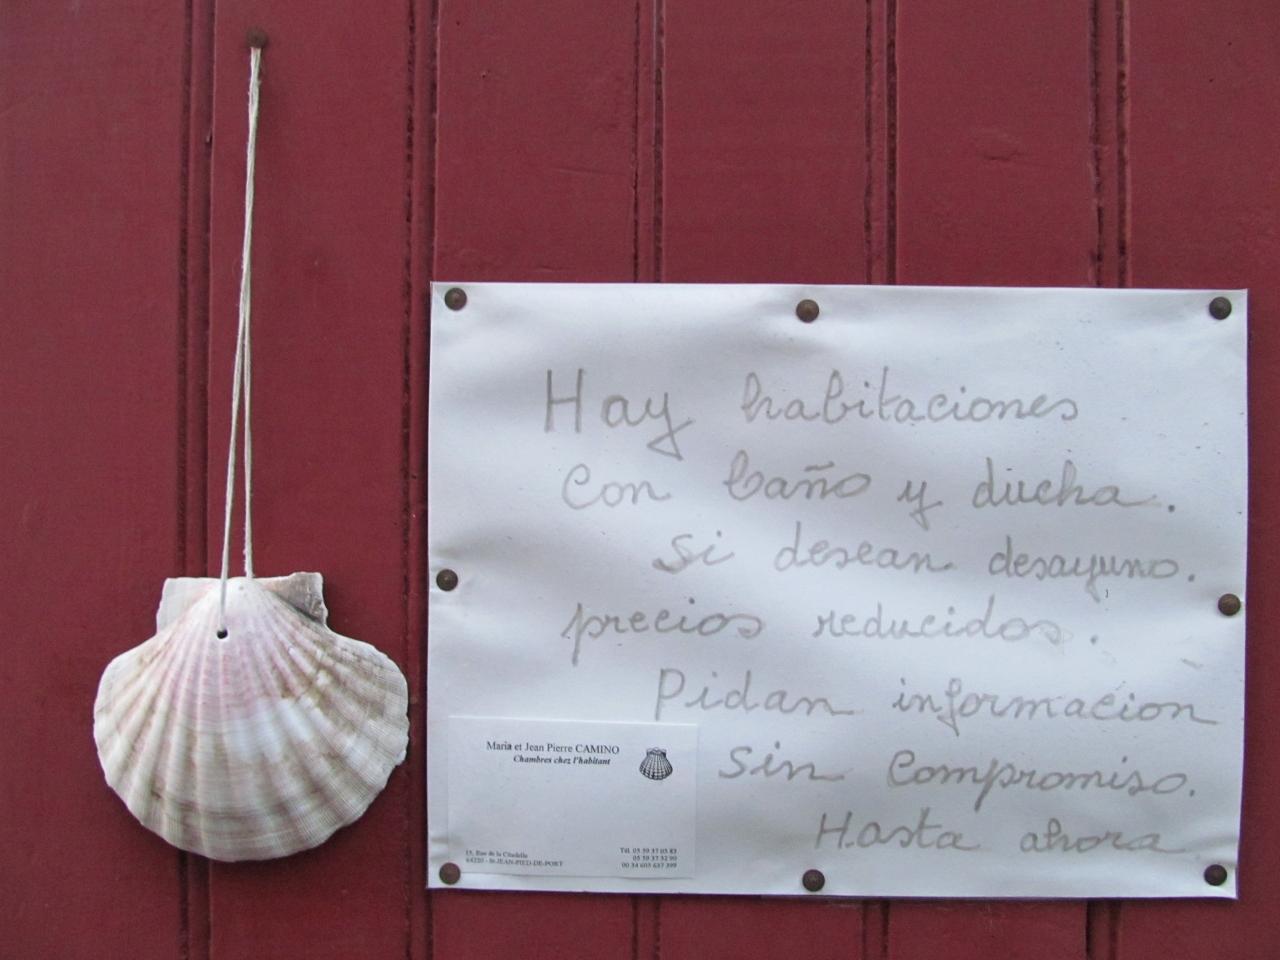 Hay habitaciones
con baño y ducha.
Si desean desayuno.
precios reducidos.
Pidan informacion
Sin compromiso.
Hasta ahora
Maria et Jean Pierre CAMINO
Chambres chez l'habitant
15, Rue de la Citadelle
64220 - St JEAN-PIED-DE-PORT
Tél. 05 59 37 05 83
05 59 37 32 99
00 34 605 637 399